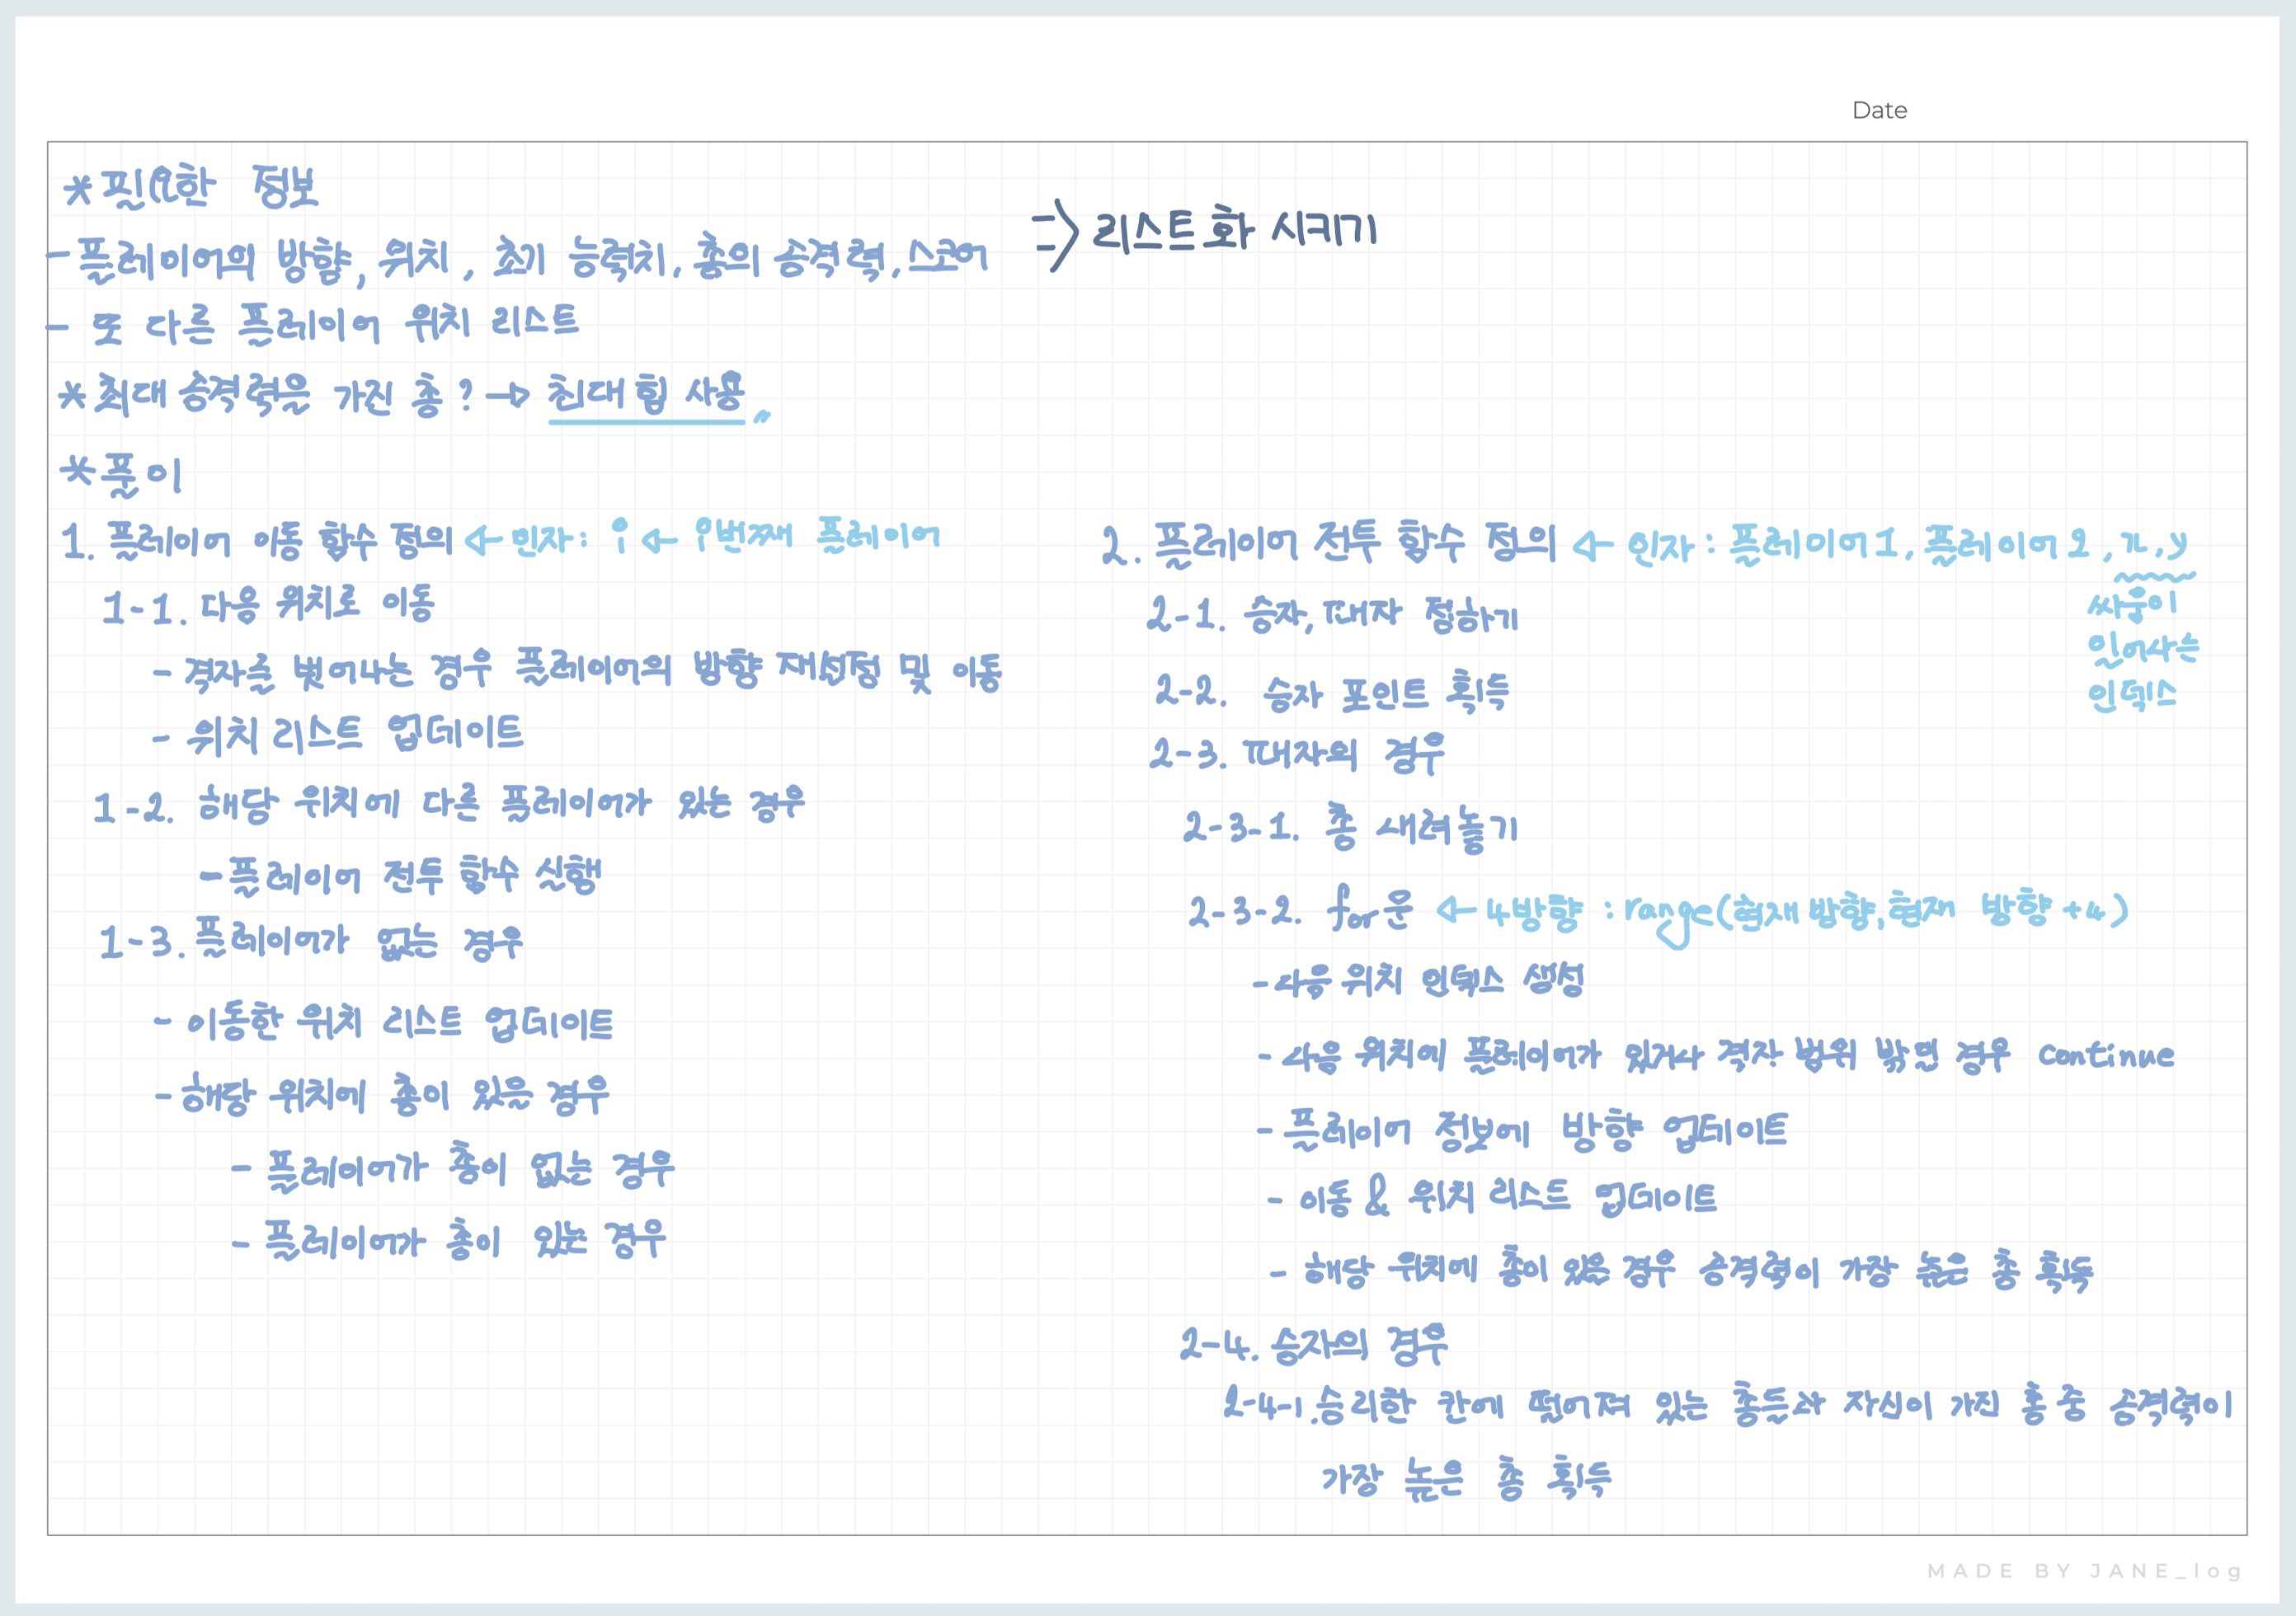 Date
*필요한 정보
-플레이어의 방향, 위치, 초기 능력치, 총의 공격력, 스코어
=> 리스트화 시키기
- 또 다른 플레이어 위치 리스트
*최대 공격력을 가진 총? → 최대힙 사용
*풀이
1. 플레이어 이동 함수 정의 ← 인자: i ← i번째 플레이어
1-1. 다음 위치로 이동
- 격자를 벗어나는 경우 플레이어의 방향 재설정 및 이동
- 위치 리스트 업데이트
1-2. 해당 위치에 다른 플레이어가 있는 경우
-플레이어 전투 함수 실행
1-3. 플레이어가 없는 경우
- 이동한 위치 리스트 업데이트
-해당 위치에 총이 있은 경우
- 플레이어가 총이 없는 경우
- 플레이어가 총이 있는 경우
2. 플레이어 전투 함수 정의 ← 인자: 플레이어1, 플레이어2, x, y
싸움이
일어나는
인덱스
2-1. 승자, 패자 정하기
2-2. 승자 포인트 획득
2-3. 패자의 경우
2-3-1. 총 내려놓기
2-3-2. for문 ← 4방향 : range(현재 방향, 현재 방향 +4)
-다음 위치 인덱스 생성
-다음 위치에 플레이어가 있거나 격자 범위 밖인 경우 continue
- 플레이어 정보에 방향 업데이트
- 이동 & 위치 리스트 업데이트
- 해당 위치에 총이 있은 경우 공격력이 가장 높은 총 획득
2-4. 승자의 경우
2-4-1. 승리한 칸에 떨어져 있는 총들과 자신이 가진 총 중 공격력이
가장 높은 총 획득
MADE BY JANE_log